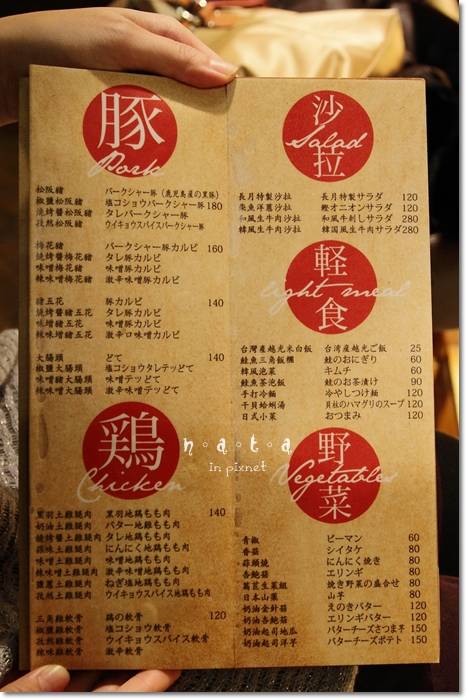 豚
Pork
松阪豬 バークシャー豚(鹿児島産の黒豚)
椒鹽松阪豬 塩コショウバークシャー豚 180
燒烤醬松阪豬 タレバークシャー豚
孜然松阪豬 ウイキョウスパイスバークシャー豚
梅花豬 バークシャー豚カルビ 160
燒烤醬梅花豬 タレ豚カルビ
味噌梅花豬 味噌豚カルビ
辣味噌梅花豬 激辛味噌豚カルビ
豬五花 豚カルビ 140
燒烤醬五花 タレ豚カルビ
味噌豬五花 味噌豚カルビ
辣味噌五花 激辛口味噌豚カルビ
大腸頭 どて 140
椒鹽大腸頭 塩コショウタレテッどて
味噌豬大腸頭 味噌テッどて
辣味噌大腸頭 味噌辛テッどて
鶏
Chicken
黑羽土雞腿肉 黒羽地鶏もも肉 140
奶油土雞腿肉 バター地鶏もも肉
燒烤醬土雞腿肉 タレ地鶏もも肉
蒜味土雞腿肉 にんにく地鶏もも肉
味噌土雞腿肉 味噌地鶏もも肉
辣味噌土雞腿肉 激辛味噌地鶏もも肉
鹽蔥土雞腿肉 ねぎ塩地鶏もも肉
孜然土雞腿肉 ウイキョウスパイス地鶏もも肉
三角雞軟骨 鶏の軟骨 120
椒鹽雞軟骨 塩コショウ軟骨
孜然雞軟骨 ウイキョウスパイス軟骨
辣味雞軟骨 激辛軟骨
沙拉
Salad
長月特製沙拉 長月特製サラダ 120
柴魚洋蔥沙拉 鰹オニオンサラダ 120
和風生牛肉沙拉 和風牛刺しサラダ 280
韓風生牛肉沙拉 韓国風生肉サラダ 280
軽食
light meal
台灣產越光米白飯 台湾産越光ご飯 25
鮭魚三角飯糰 鮭のおにぎり 60
韓風泡菜 キムチ 60
鮭魚茶泡飯 鮭のお茶漬け 90
手打冷麵 冷やしつけ麺 120
干貝蛤蜊湯 貝柱のハマグリのスープ 120
日式小菜 おつまみ 120
野菜
Vegetables
青椒 ピーマン 60
香菇 シイタケ 80
蒜頭燒 にんにく焼き 80
杏鮑菇 エリンギ 80
萬苣生菜組 焼き野菜の盛合せ 80
日本山藥 山芋 80
奶油金針菇 えのきバター 120
奶油杏鮑菇 エリンギバター 120
奶油起司地瓜 バターチーズさつま芋 150
奶油起司洋芋 バターチーズポテト 150
n·a·t·a
in pixnet